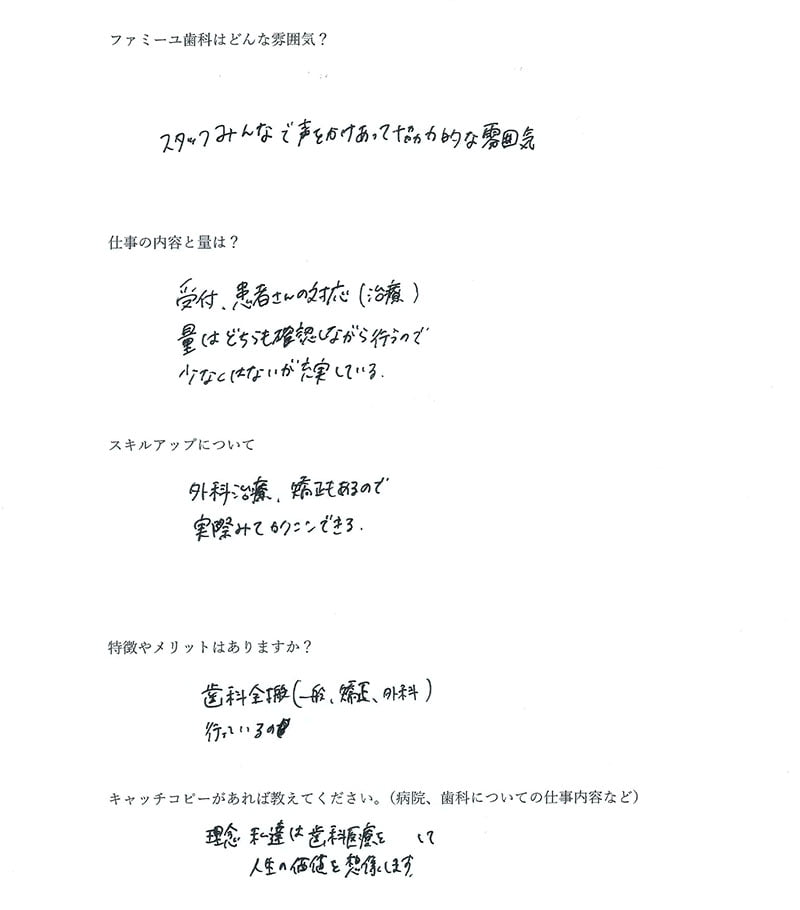 ファミーユ歯科はどんな雰囲気？
スタッフみんなで声をかけあって協力的な雰囲気
仕事の内容と量は？
受付、患者さんの対応（治療）
量はどちらも確認しながら行うので
少なくはないが充実している.
スキルアップについて
外科治療、矯正もあるので
実際みてカクニンできる.
特徴やメリットはありますか？
歯科全搬（一般、矯正、外科）
行っているの
キャッチコピーがあれば教えてください。（病院、歯科についての仕事内容など）
理念 私達は歯科医療を　して
人生の価値を想像します